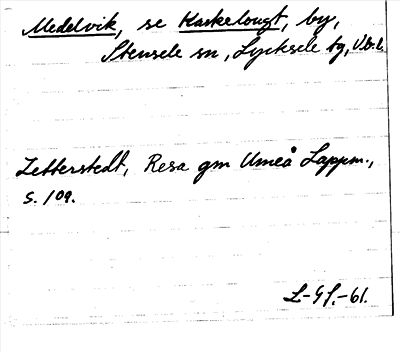 Medelvik, se Kaskelougt, by,
Stensele sn, Lycksele tg, Vb. l.
Zetterstedt, Resa gm Umeå Lappm.,
s. 109.
L-G L.-61.